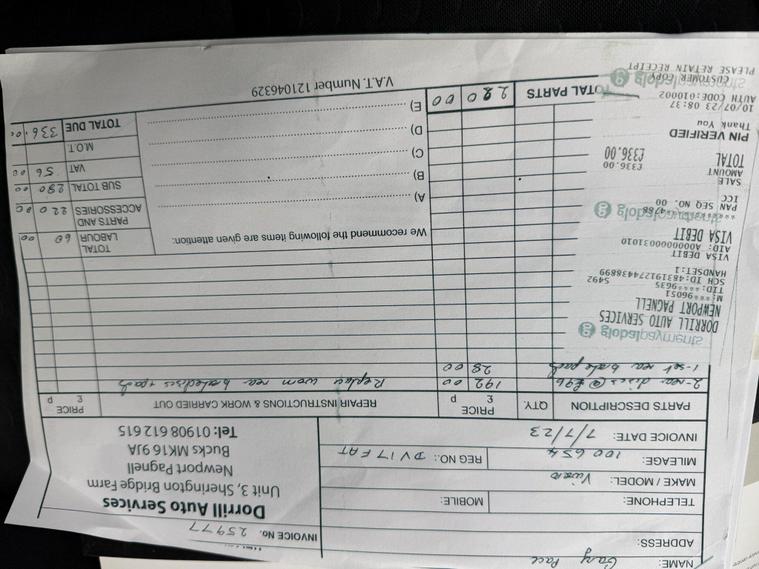 INVOICE No. 25977
NAME: Gary Pace
ADDRESS:
TELEPHONE: MOBILE:
MAKE / MODEL: Vivaro
MILEAGE: 100654 REG NO.: DV17 FAT
INVOICE DATE: 7/7/23
Dorrill Auto Services
Unit 3, Sherington Bridge Farm
Newport Pagnell
Bucks MK16 9JA
Tel: 01908 612 615
PARTS DESCRIPTION QTY. PRICE £ p REPAIR INSTRUCTIONS & WORK CARRIED OUT PRICE £ p
2-rear discs @ £96 192 00 Replace worn rear brake discs + pads
1-set rea brake pads 28 00
TOTAL PARTS 220 00
We recommend the following items are given attention:
A)
B)
C)
D)
E)
TOTAL LABOUR 60 00
PARTS AND ACCESSORIES 220 00
SUB TOTAL 280 00
VAT 56 00
M.O.T.
TOTAL DUE 336.00
V.A.T. Number 121046329
globalpayments
DORRILL AUTO SERVICES
NEWPORT PAGNELL
M:**96051
TID:****9635
SCH ID:
HANDSET:1 5492
VISA DEBIT
AID: A0000000031010
VISA DEBIT
PAN SEQ NO. 00
ICC
SALE
AMOUNT £336.00
TOTAL £336.00
PIN VERIFIED
Thank You
10/07/23 08:37
AUTH CODE:610002
CUSTOMER COPY
PLEASE RETAIN RECEIPT